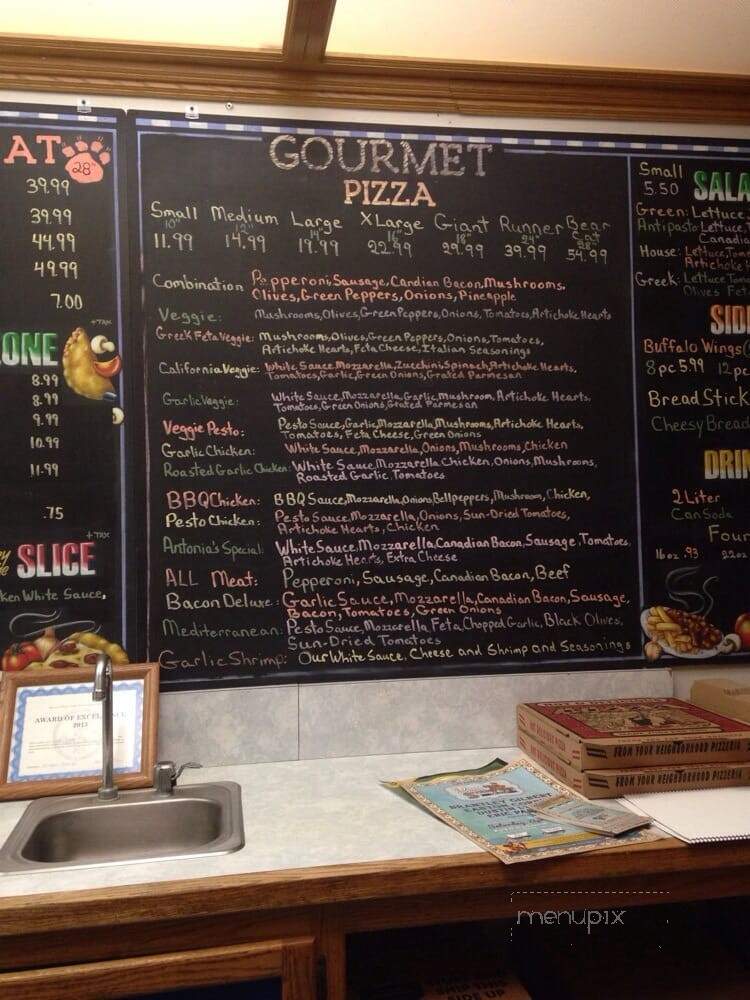 AT
28"
39.99
39.99
44.99
49.99
7.00
+TAX
ONE
8.99
8.99
9.99
10.99
11.99
.75
+TAX
SLICE
ken White Sauce,
GOURMET
PIZZA
Small Medium Large XLarge Giant Runner Bear
10" 12" 14" 16" 18" 24" Feet 28"
11.99 14.99 19.99 22.99 29.99 39.99 54.99
Combination Pepperoni, Sausage, Candian Bacon, Mushrooms,
Olives, Green Peppers, Onions, Pineapple
Veggie: Mushrooms, Olives, Green Peppers, Onions, Tomatoes, Artichoke Hearts
Greek Feta Veggie: Mushrooms, Olives, Green Peppers, Onions, Tomatoes,
Artichoke Hearts, Feta Cheese, Italian Seasonings
California Veggie: White Sauce, Mozzarella, Zucchini, Spinach, Artichoke Hearts,
Tomatoes, Garlic, Green Onions, Grated Parmesan
Garlic Veggie: White Sauce, Mozzarella, Garlic, Mushroom, Artichoke Hearts,
Tomatoes, Green Onions, Grated Parmesan
Veggie Pesto: Pesto Sauce, Garlic, Mozzarella, Mushrooms, Artichoke Hearts,
Tomatoes, Feta Cheese, Green Onions
Garlic Chicken: White Sauce, Mozzarella, Onions, Mushrooms, Chicken
Roasted Garlic Chicken: White Sauce, Mozzarella, Chicken, Onions, Mushrooms,
Roasted Garlic, Tomatoes
BBQ Chicken: BBQ Sauce, Mozzarella, Onions, Bellpeppers, Mushroom, Chicken,
Pesto Chicken: Pesto Sauce, Mozzarella, Onions, Sun-Dried Tomatoes,
Artichoke Hearts, Chicken
Antonia's Special: White Sauce, Mozzarella, Canadian Bacon, Sausage, Tomatoes,
Artichoke Hearts, Extra Cheese
ALL Meat: Pepperoni, Sausage, Canadian Bacon, Beef
Bacon Deluxe: Garlic Sauce, Mozzarella, Canadian Bacon, Sausage,
Bacon, Tomatoes, Green Onions
Mediterranean: Pesto Sauce, Mozzarella, Feta, Chopped Garlic, Black Olives,
Sun-Dried Tomatoes
Garlic Shrimp: Our White Sauce, Cheese and Shrimp and Seasonings
Small
5.50
SALA
Green: Lettuce
Antipasto: Lettuce, T
Canadi
House: Lettuce, Tom
Artichoke
Greek: Lettuce Toma
Olives Fet
SID
Buffalo Wings
8 pc 5.99 12 pc
Bread Stick
Cheesy Bread
DRIN
2 Liter
Can Soda
Four
16 oz .93 22 oz
AWARD OF EXCELLENCE
2013
FROM YOUR NEIGHBORHOOD PIZZERIA
FROM YOUR NEIGHBORHOOD PIZZERIA
BRANTLEY GILBERT
EASTON
DUSTIN
ERIC PA
Saturday
menupix